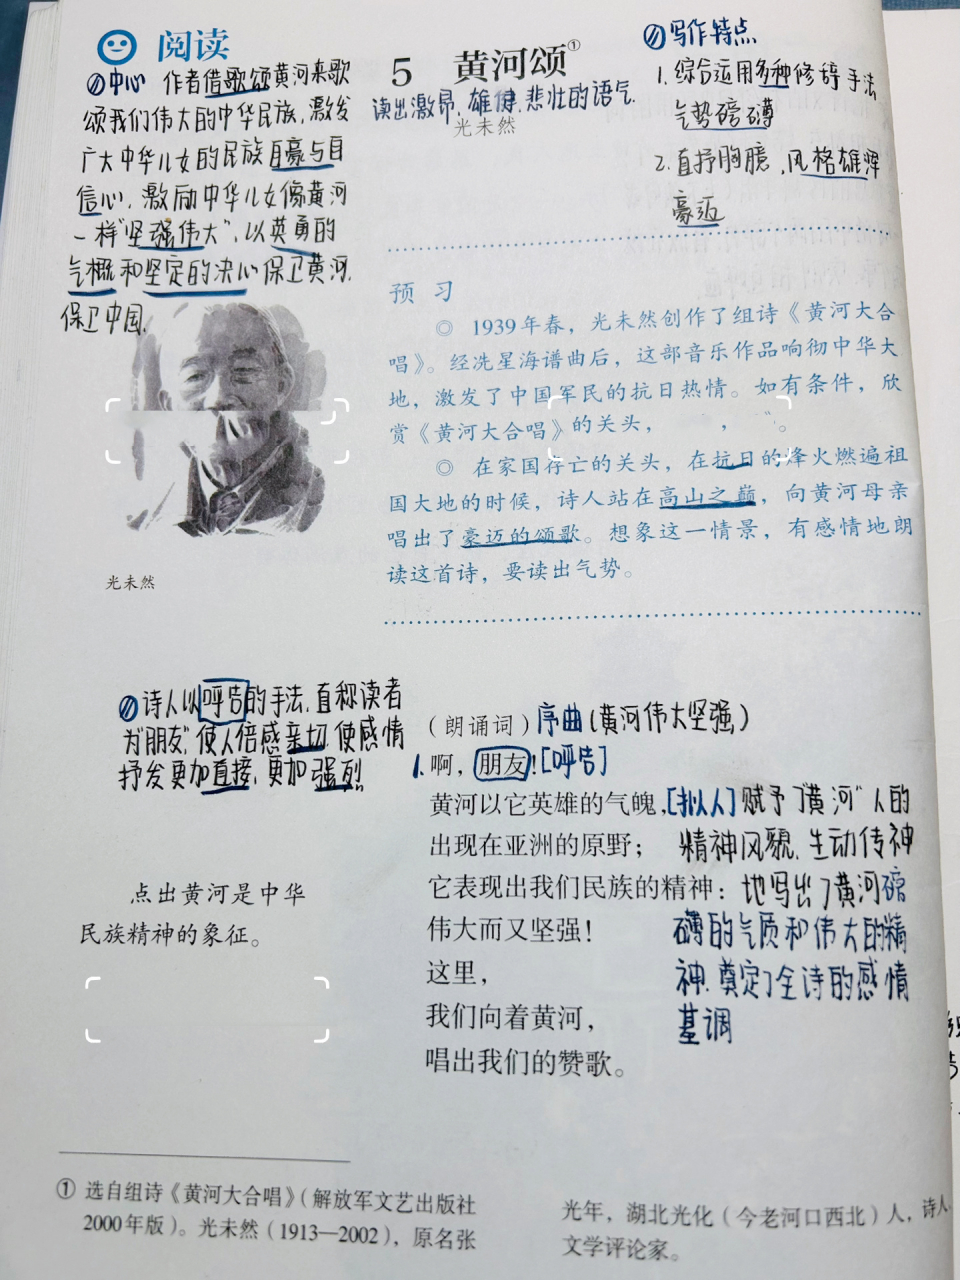 阅读
中心 作者借歌颂黄河来歌
颂我们伟大的中华民族，激发
广大中华儿女的民族自豪与自
信心，激励中华儿女像黄河
一样“坚强伟大”，以英勇的
气概和坚定的决心保卫黄河，
保卫中国。
5 黄河颂①
读出激昂、雄健、悲壮的语气
光未然
写作特点
1.综合运用多种修辞手法
气势磅礴
2.直抒胸臆，风格雄浑
豪迈
预习
◎ 1939年春，光未然创作了组诗《黄河大合
唱》。经冼星海谱曲后，这部音乐作品响彻中华大
地，激发了中国军民的抗日热情。如有条件，欣
赏《黄河大合唱》的关头，
◎ 在家国存亡的关头，在抗日的烽火燃遍祖
国大地的时候，诗人站在高山之巅，向黄河母亲
唱出了豪迈的颂歌。想象这一情景，有感情地朗
读这首诗，要读出气势。
光未然
诗人以呼告的手法，直称读者
为“朋友”，使人倍感亲切，使感情
抒发更加直接，更加强烈。
点出黄河是中华
民族精神的象征。
（朗诵词）序曲（黄河伟大坚强）
1.啊，朋友！[呼告]
黄河以它英雄的气魄，[拟人]赋予了“黄河”人的
出现在亚洲的原野；精神风貌，生动传神
它表现出我们民族的精神：地写出了黄河磅
伟大而又坚强！礴的气质和伟大的精
这里，神，奠定了全诗的感情
我们向着黄河，基调
唱出我们的赞歌。
① 选自组诗《黄河大合唱》（解放军文艺出版社
2000年版）。光未然（1913—2002），原名张
光年，湖北光化（今老河口西北）人，诗人
文学评论家。